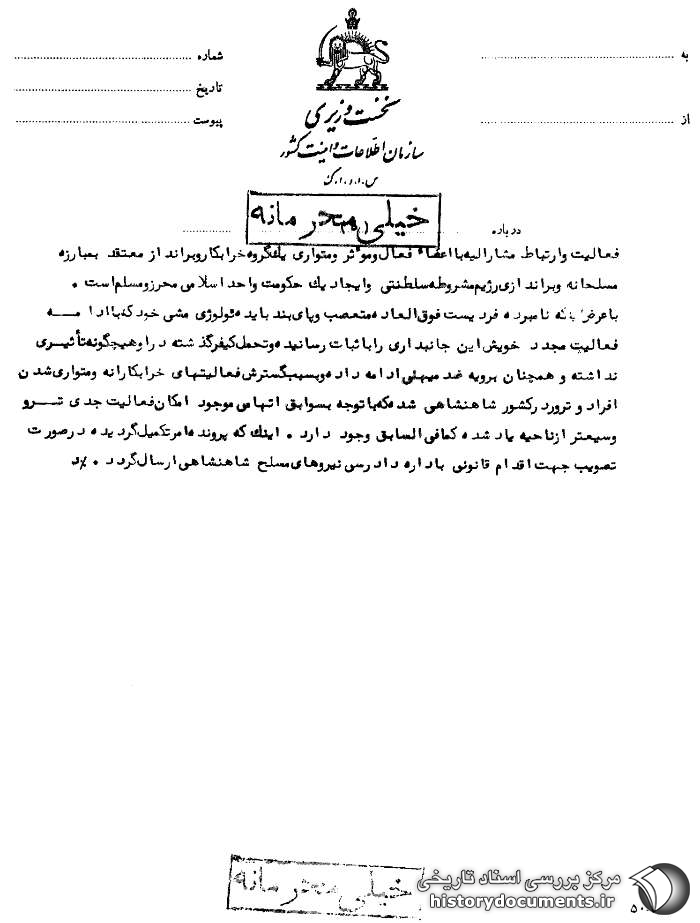 به
شماره
تاریخ
از
پیوست
نخست وزیری
سازمان اطلاعات و امنیت کشور
س.ا.و.ا.ک
خیلی محرمانه
درباره
فعالیت وارتباط مشارالیه بااعضاء فعال وموثر ومتواری یک گروه خرابکاروبرانداز معتقد بمبارزه
مسلحانه وبراندازی رژیم مشروطه سلطنتی وایجاد یک حکومت واحد اسلامی محرزومسلم است .
باعرض اینکه نامبرده فردیست فوق العاده متعصب وپای بند بایدئولوژی مشی خود که باادامه
فعالیت مجدد خویش این جانبداری رابا ثبات رسانیده وتحمل کیفرگذشته دراوهیچگونه تأثیری
نداشته و همچنان برویه ضد میهنی ادامه داده وبسبب گسترش فعالیتهای خرابکارانه ومتواری شدن
افراد و ترور در کشور شاهنشاهی شده که باتوجه بسوابق اتهامی موجود امکان فعالیت جدی تر و
وسیعتر ازناحیه یاد شده کمافی السابق وجود دارد . اینک که پرونده امر تکمیل گردیده درصورت
تصویب جهت اقدام قانونی باداره دادرسی نیروهای مسلح شاهنشاهی ارسال گردد .
خیلی محرمانه
مرکز بررسی اسناد تاریخی
historydocuments.ir